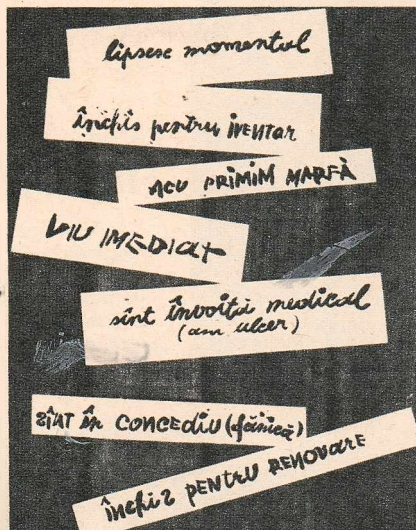 lipsesc momentul
închis pentru iVENTAR
ACU PRIMIM MARFĂ
VIU IMEDIAT
sînt învoită medical
(am ulcer)
SÎNT în CONCEDIU (fănică)
închis PENTRU RENOVARE